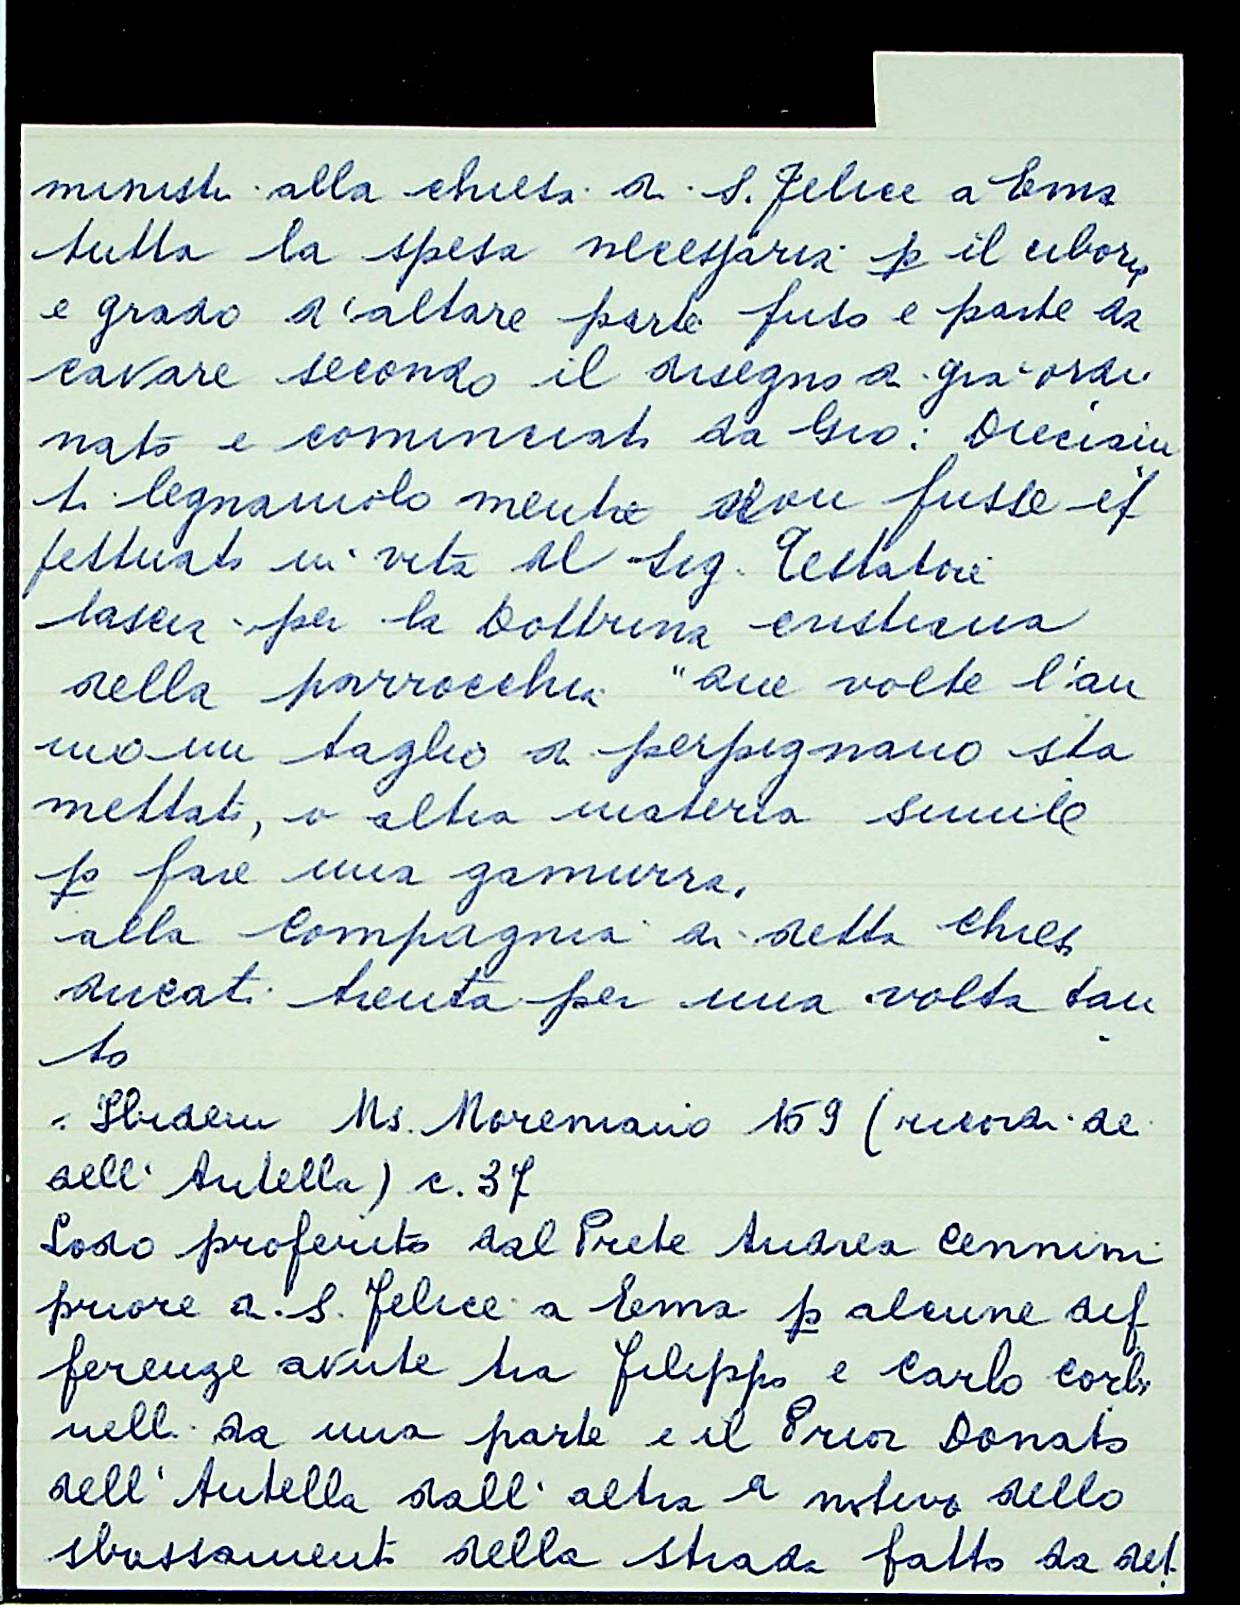 ministri alla chiesa di S. Felice a Ema
tutta la spesa necessaria p il ciborio
e grado d'altare parte fuso e parte da
cavare secondo il disegno di già ordi
nato e cominciato da Gio:
ti legnaiuolo mentre non fusse ef
fettuato in vita del Sig. Testatore
lascia per la Dottrina cristiana
della parrocchia "due volte l'an
no un taglio di perpignano sta
mettato, o altra materia simile
p fare una gamurra.
alla Compagnia di detta Chiesa
ducati trenta per una volta tan
to
Ibidem Ms. Moreniano 159 (ricordi de
dell'Antella) c. 37
Lodo proferito dal Prete Andrea Cennini
priore di S. Felice a Ema p alcune dif
ferenze avute tra Filippo e Carlo Corbi
nelli da una parte e il Prior Donato
dell'Antella dall'altra a motivo dello
sbassamento della strada fatto da det